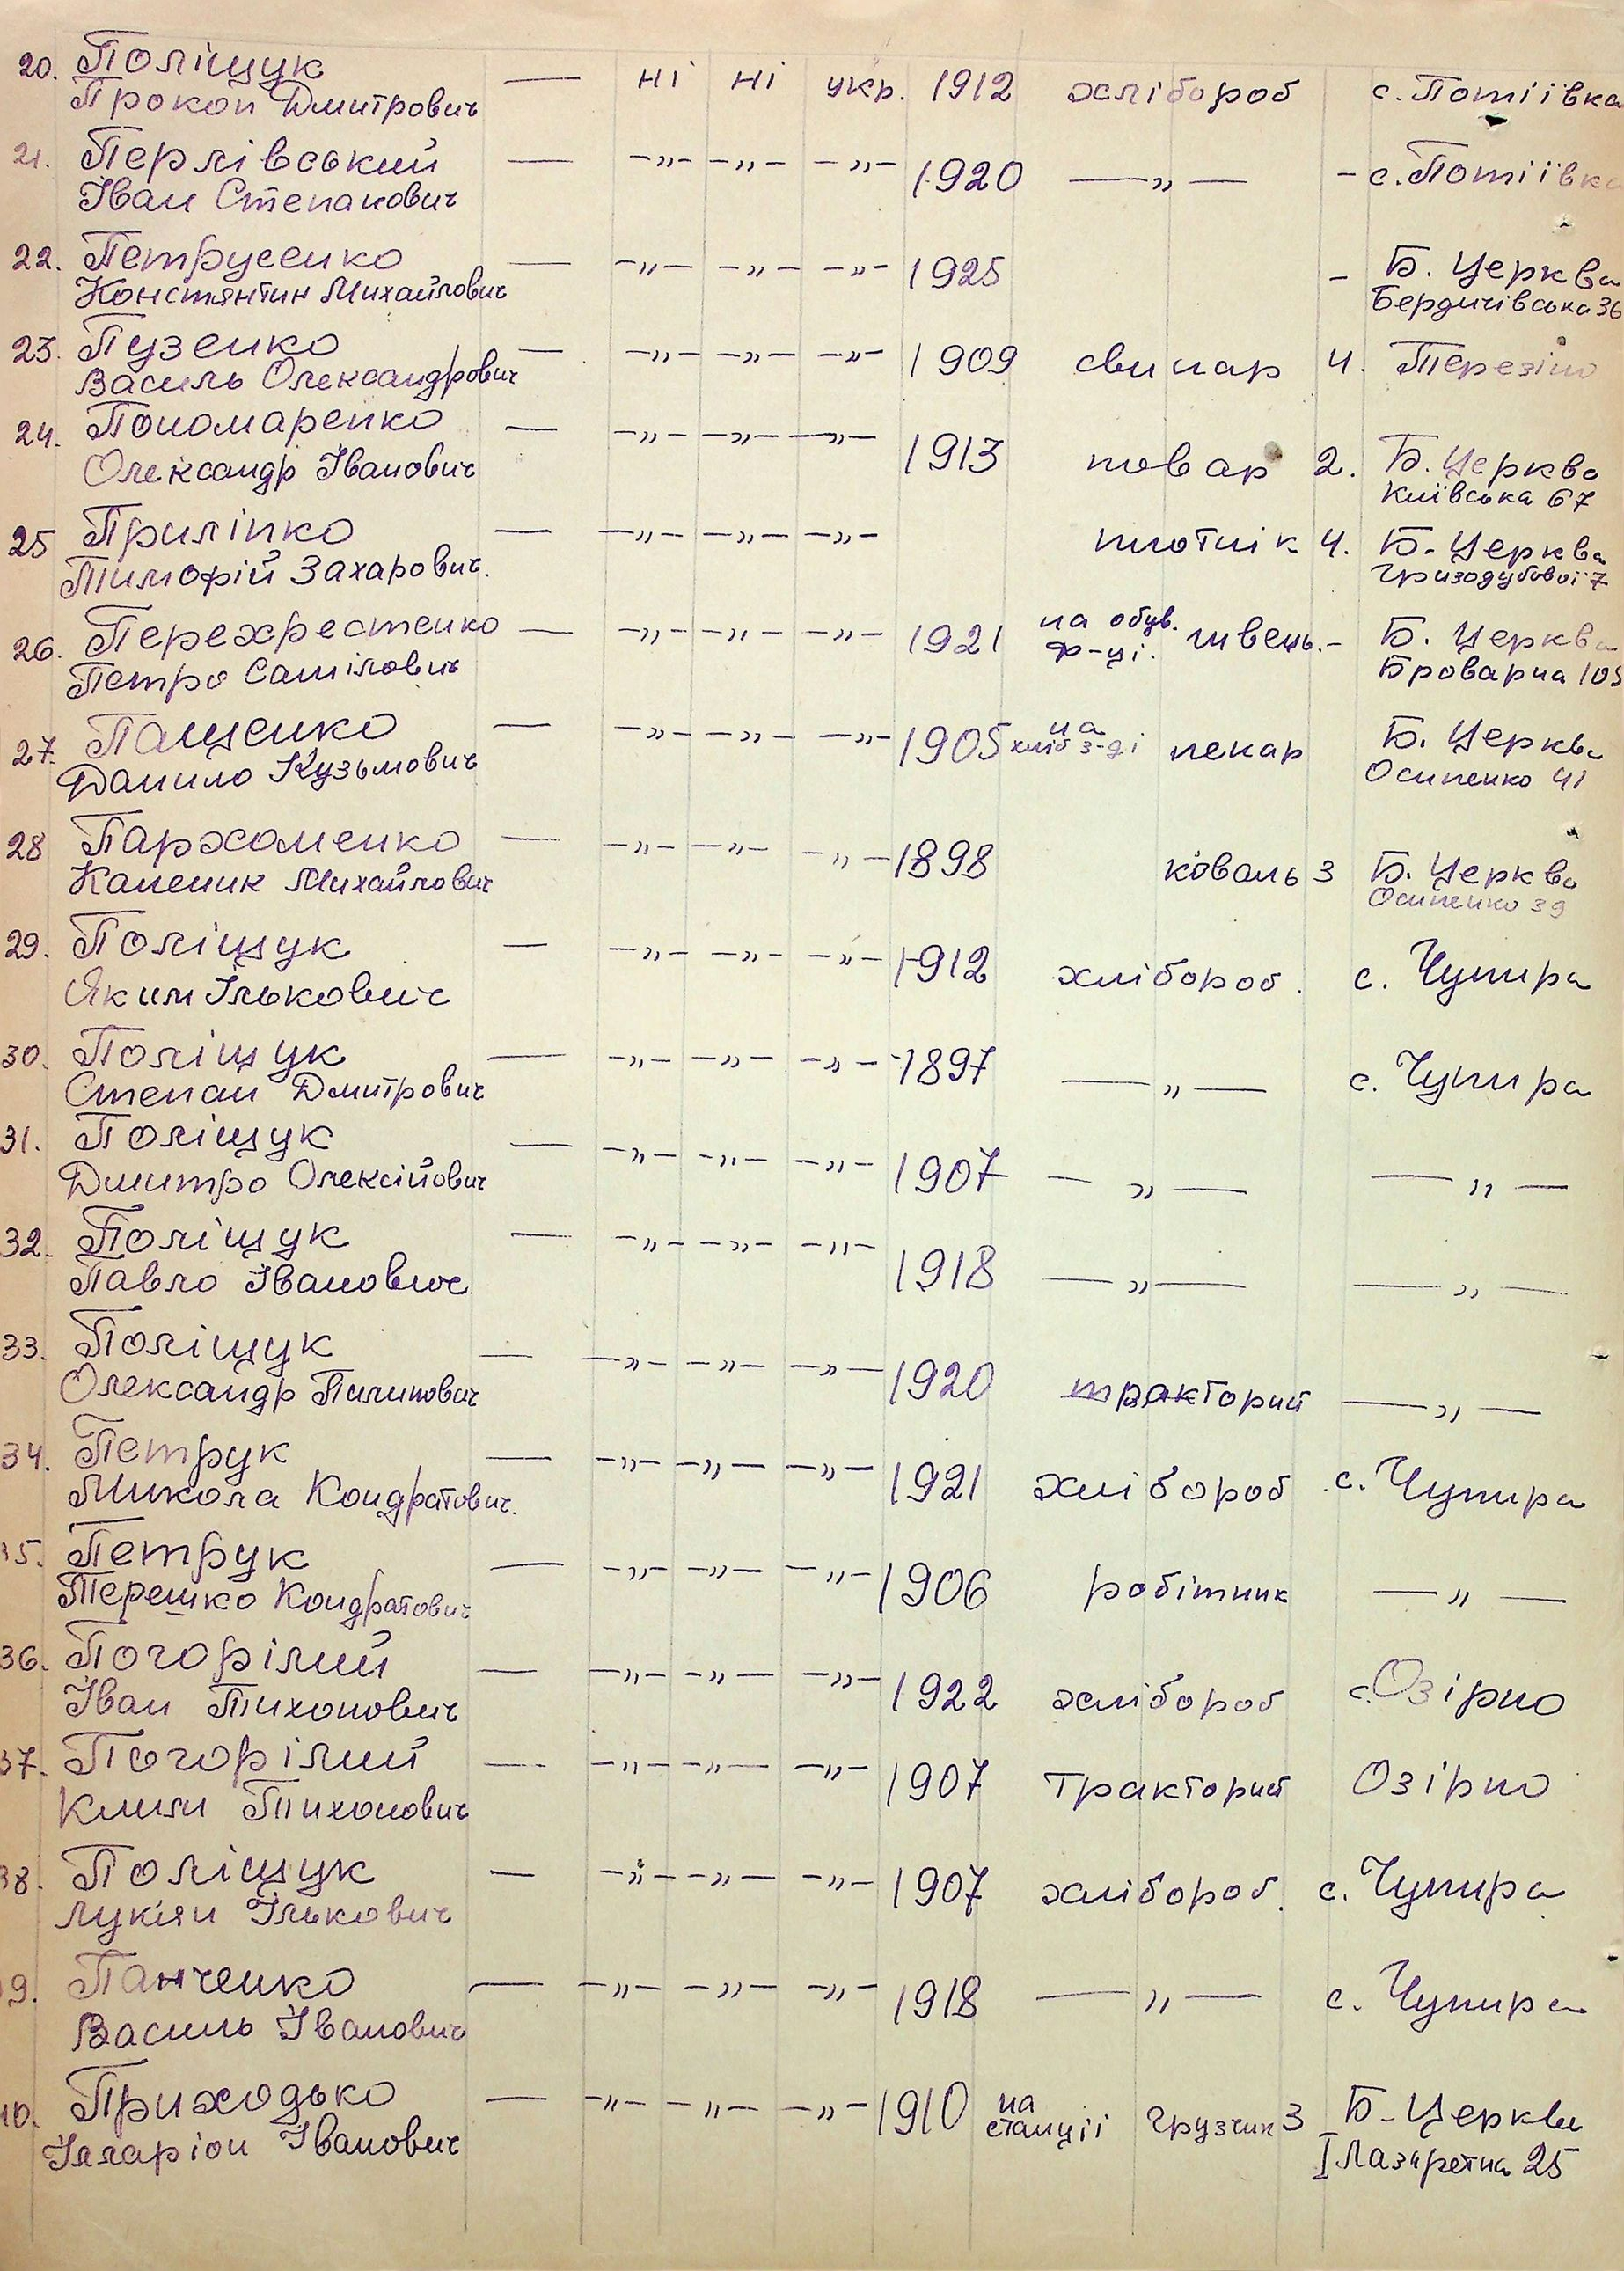 20. Поліщук — ні ні укр. 1912 хлібороб с. Потіївка
Прокоп Дмитрович
21. Перлівський — —„— —„— —„— 1920 —„— - с. Потіївка
Іван Степанович
22. Петрусенко — —„— —„— —„— 1925 - Б. Церква
Констянтин Михайлович Бердичівська 36
23. Пузенко — —„— —„— —„— 1909 свинар 4. Терезіно
Василь Олександрович
24. Пономаренко — —„— —„— —„— 1913 повар 2. Б. Церква
Олександр Іванович Київська 67
25 Приліпко — —„— —„— —„— плотнік 4. Б. Церква
Тимофій Захарович. Гризодубової 7
26. Перехрестенко — —„— —„— —„— 1921 на обув. ф-ці. швець. - Б. Церква
Петро Самілович Броварна 105
27. Пащенко — —„— —„— —„— 1905 на хліб з-ді пекар Б. Церква
Данило Кузьмович Осипенко 41
28 Пархоменко — —„— —„— —„— 1898 коваль 3 Б. Церква
Каленик Михайлович Осипенко 39
29. Поліщук — —„— —„— —„— 1912 хлібороб. с. Чупира
Яким Ількович
30. Поліщук — —„— —„— —„— 1897 —„— с. Чупира
Степан Дмитрович
31. Поліщук — —„— —„— —„— 1907 —„— —„—
Дмитро Олексійович
32. Поліщук — —„— —„— —„— 1918 —„— —„—
Павло Іванович
33. Поліщук — —„— —„— —„— 1920 тракторит —„—
Олександр Пилипович
34. Петрук — —„— —„— —„— 1921 хлібороб с. Чупира
Микола Кондратович.
35. Петрук — —„— —„— —„— 1906 робітник —„—
Терешко Кондратович
36. Погорілий — —„— —„— —„— 1922 хлібороб с. Озірно
Іван Тихонович
37. Погорілий — —„— —„— —„— 1907 Тракторит Озірно
Клим Тихонович
38. Поліщук — —„— —„— —„— 1907 хлібороб. с. Чупира
Лук'ян Ількович
39. Панченко — —„— —„— —„— 1918 —„— с. Чупира
Василь Іванович
40. Приходько — —„— —„— —„— 1910 на станції грузчик 3 Б. Церква
Ілларіон Іванович I Лазаретна 25